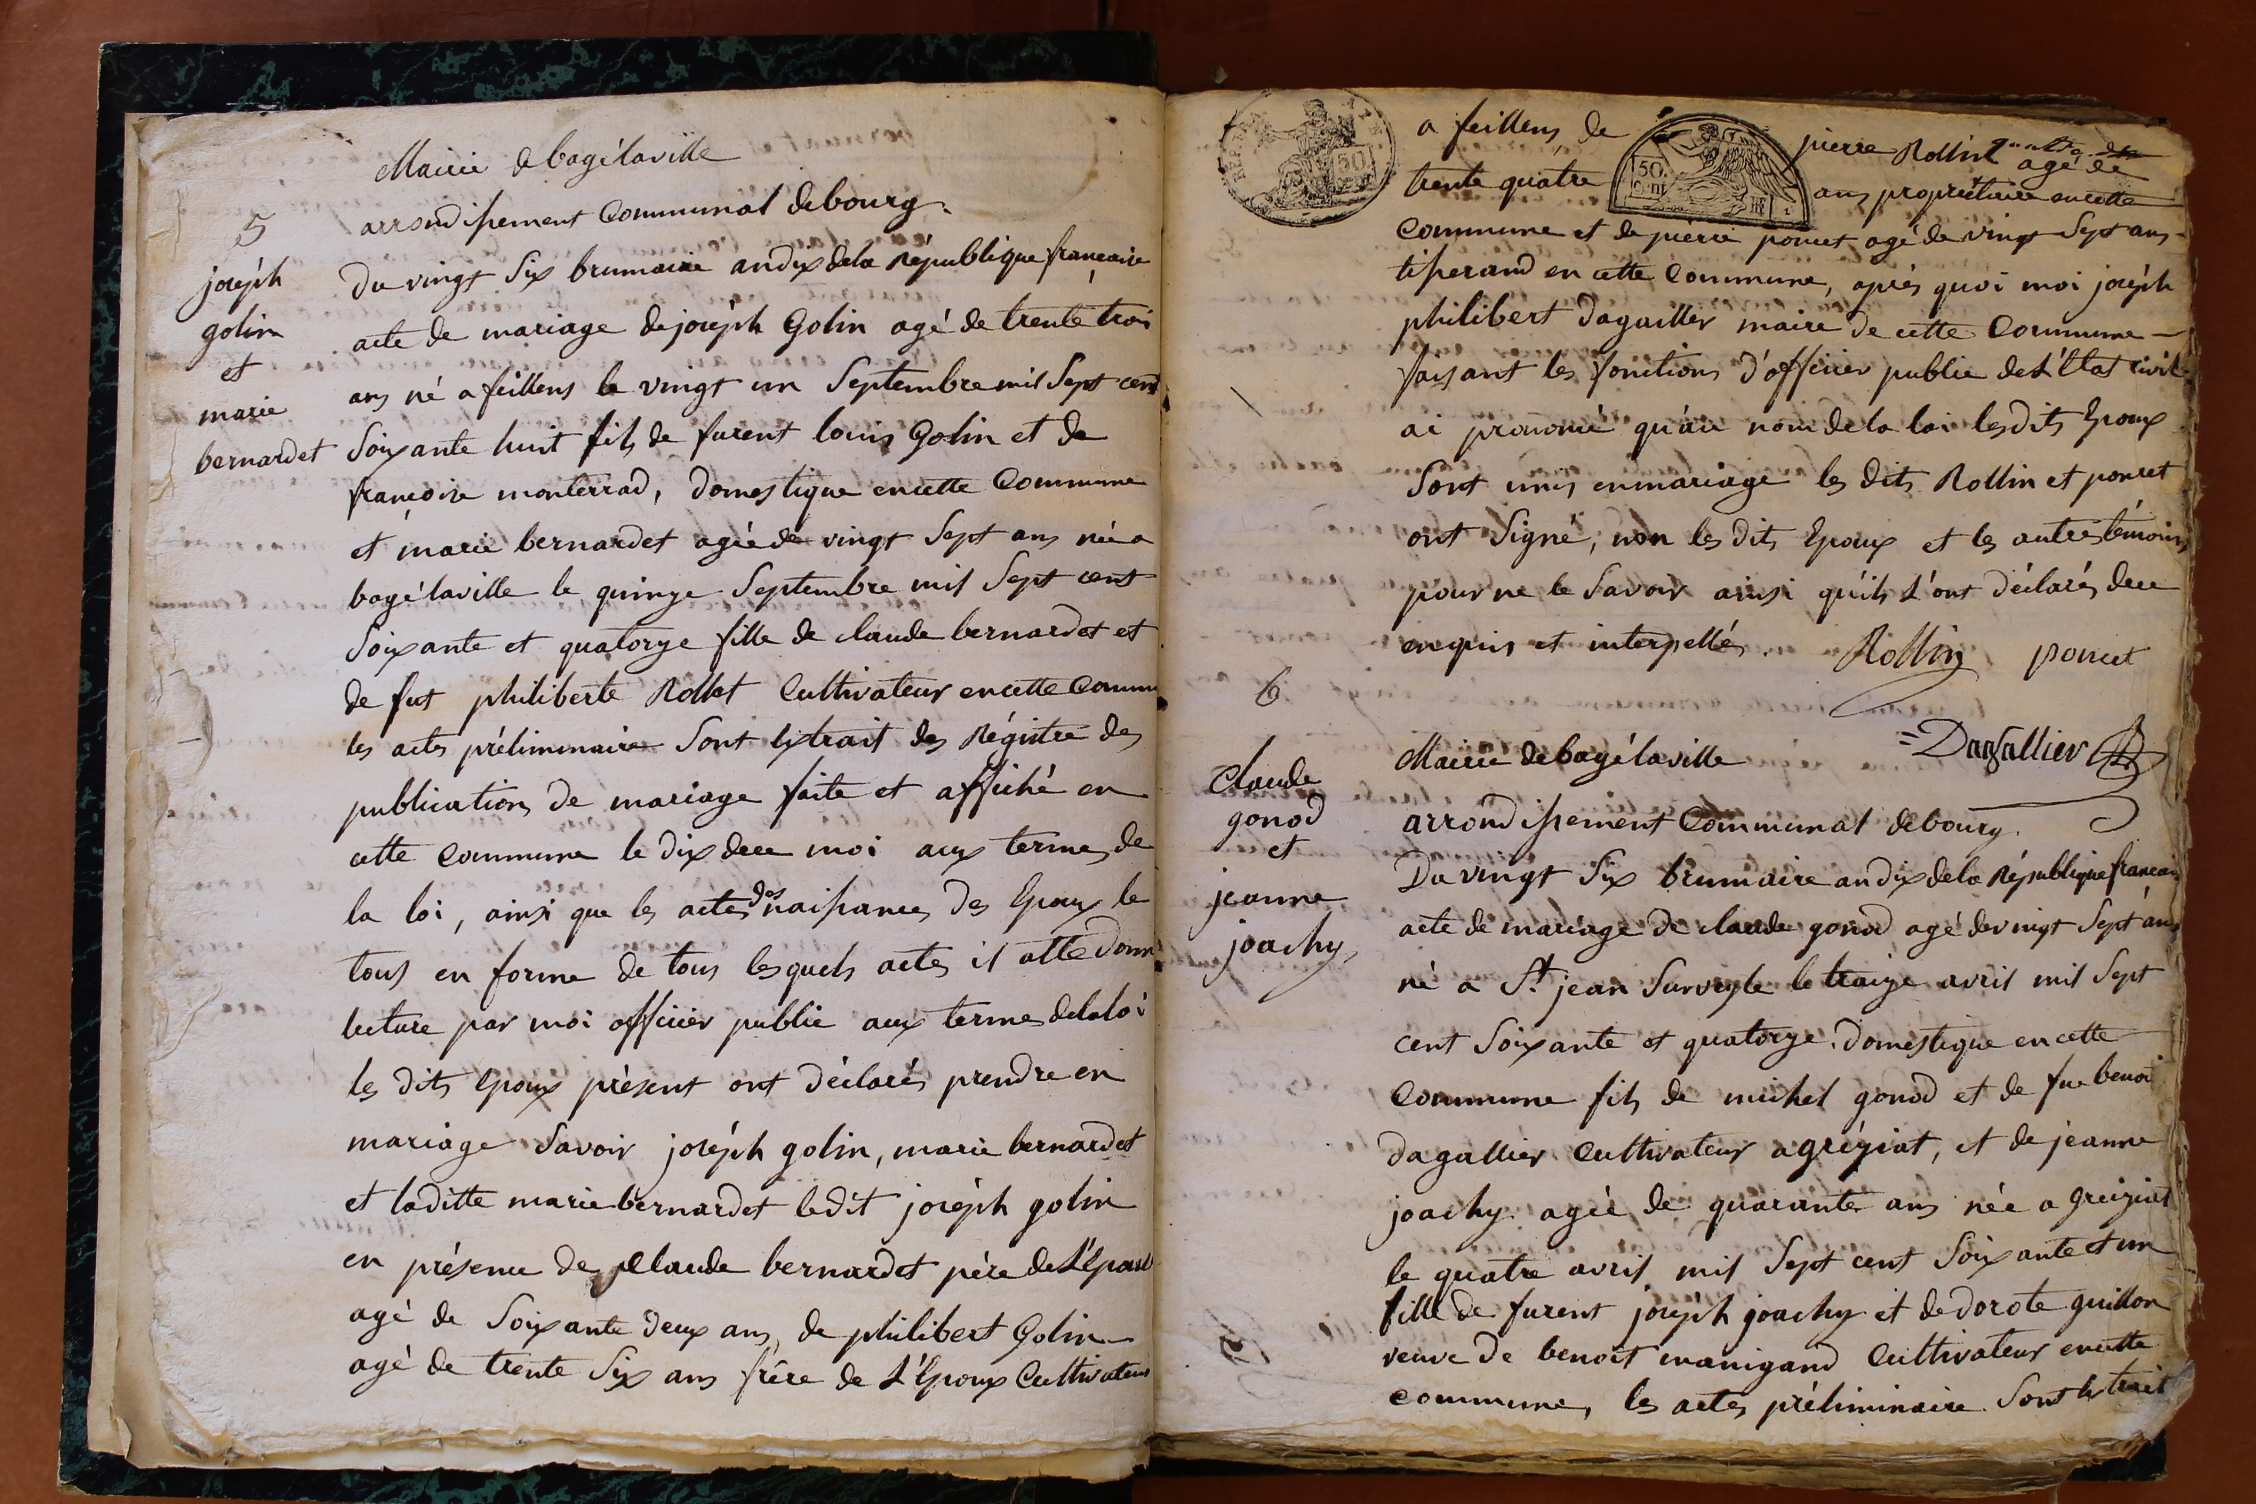 Mairie de bagélaville
arrondissement Communal debourg.
5
joséph
golin
et
marie
bernardet
Du vingt Six brumaire andix dela République francaise
acte de mariage de joséph Golin agé de trente trois
ans né a feillens le vingt un Septembre mil Sept cent
Soixante huit fils de furent louis Golin et de
francoise monterrad, domestique encette Commune
et marie bernardet agée de vingt Sept ans née a
bagélaville le quinze Septembre mil Sept cent
Soixante et quatorze fille de claude bernardet et
de fut philiberte Rollet Cultivateur encette Commu
les actes préliminaire Sont Extrait des Régistre des
publications de mariage faite et affiché en
cette Commune le dix dece moi aux termes de
la loi, ainsi que les actes des naissances des Epoux le
tous en forme de tous lesquels actes il a été donn
lecture par moi officier public aux termes delaloi
les dits Epoux présent ont déclarés prendre en
mariage Savoir joséph golin, marie bernardet
et laditte marie bernardet ledit joséph golin
en présence de Claude bernardet père de L'épous
agé de Soixante deux ans, de philibert Golin
agé de trente Six ans frère de L'Epoux Cultivateur
a feillens, de pierre Rollin agé de
50. Cent
trente quatre ans propriétaire encette
Commune et de pierre poncet agé de vingt Sept ans
tisserand en cette Commune, après quoi moi joséph
philibert dagallier maire de cette Commune
faisant les fonctions d'officier public de L'Etat civil
ai prononcé qu'au nom de la loi lesdits Epoux
Sont unis enmariage les dits Rollin et poncet
ont Signé, non les dits Epoux et les autres témoins
pour ne le Savoir ainsi qu'ils L'ont déclarés dece
enquis et interpellés. Rollin poncet
Dagallier
6
Claude
gonod
et
jeanne
joachy,
Mairie debagélaville
arrondissement Communal debourg.
Du vingt Six brumaire andix dela République francais
acte de mariage de claude gonod agé de vingt Sept ans
né a St. jean Surveyle le traize avril mil Sept
cent Soixante et quatorze. domestique encette
Commune fils de michel gonod et de fue benoi
dagallier Cultivateur agréziat, et de jeanne
joachy agée de quarante ans née a greiziat
le quatre avril mil Sept cent Soixante et un
fille de furent joséph joachy et de dorote guillon
veuve de benoit manigand Cultivateur encette
commune, les actes préliminaire Sont Extrait